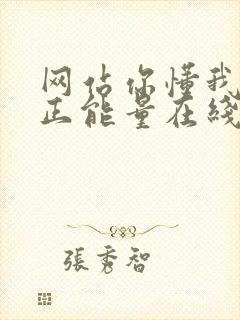 网估你懂我
正能量在线
張秀智